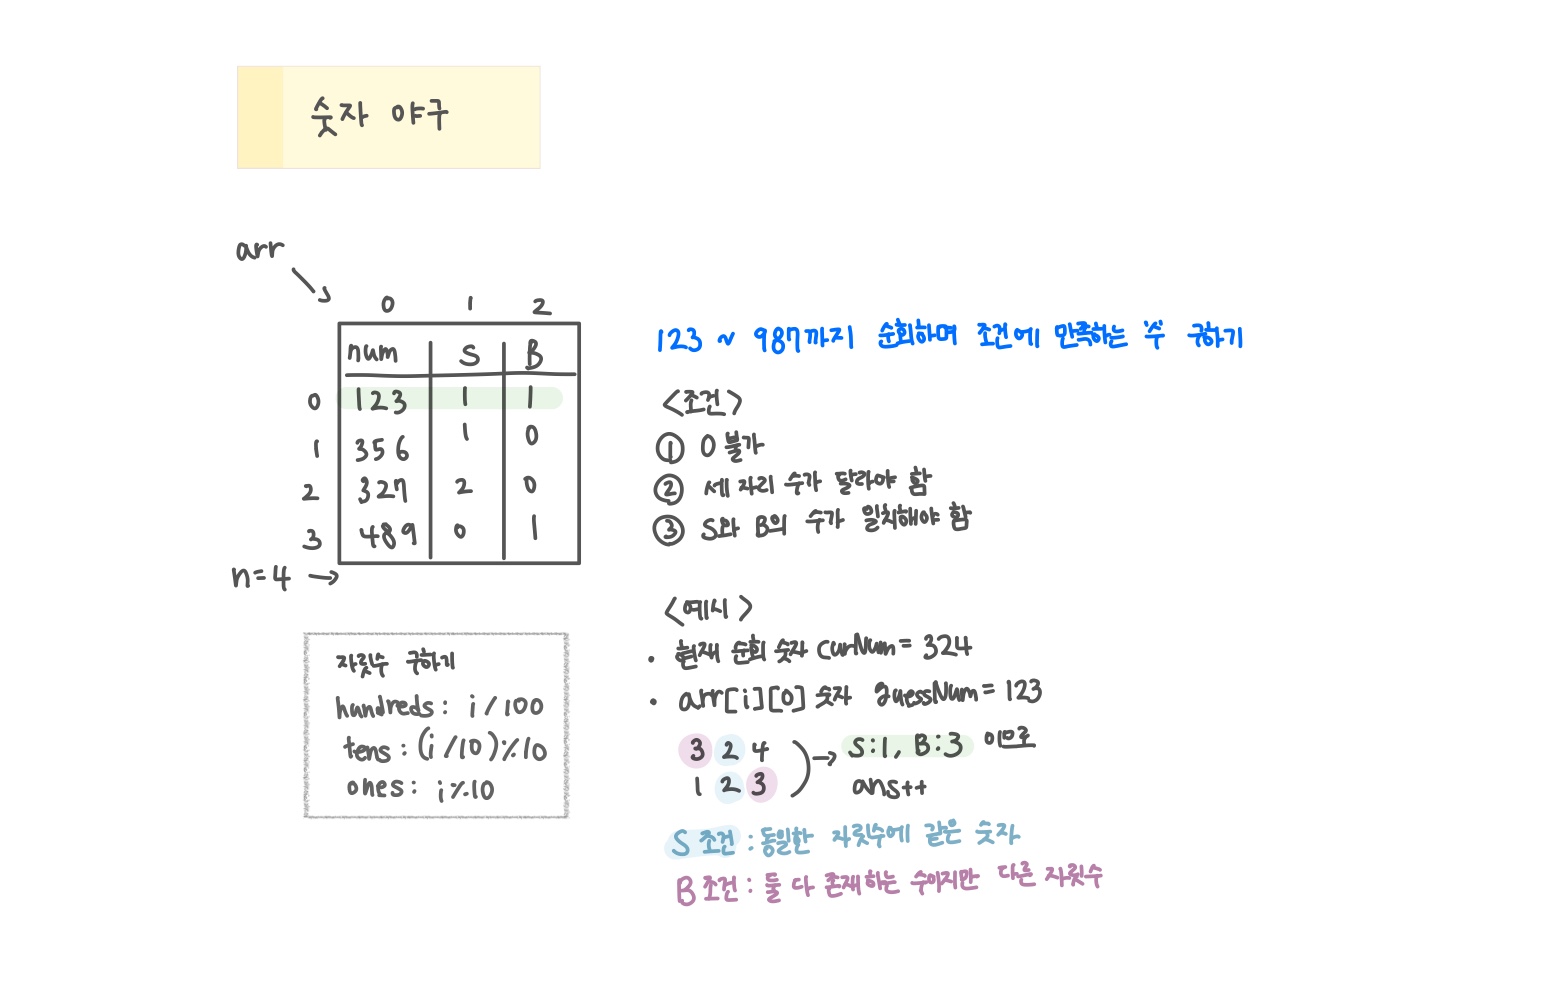 숫자 야구
arr
0 1 2
num S B
0 123 1 1
1 356 1 0
2 327 2 0
3 489 0 1
n=4 →
자릿수 구하기
hundreds: i/100
tens: (i/10)%10
ones: i%10
123 ~ 987까지 순회하며 조건에 만족하는 '수' 구하기
<조건>
① 0 불가
② 세 자리 수가 달라야 함
③ S와 B의 수가 일치해야 함
<예시>
• 현재 순회 숫자 curNum = 324
• arr[i][0] 숫자 guessNum = 123
3 2 4
1 2 3
→ S:1, B:3 이므로
ans++
S 조건 : 동일한 자릿수에 같은 숫자
B 조건 : 둘 다 존재하는 수이지만 다른 자릿수